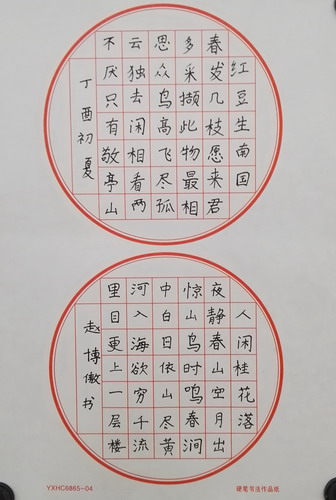 红豆生南国
春发几枝愿来君
多采撷此物最相
思众鸟高飞尽孤
云独去闲相看两
不厌只有敬亭山
丁酉初夏
人闲桂花落
夜静春山空月出
惊山鸟时鸣春涧
中白日依山尽黄
河入海欲穷千流
里目更上一层楼
赵博傲书
YXHC8865-04
硬笔书法作品纸